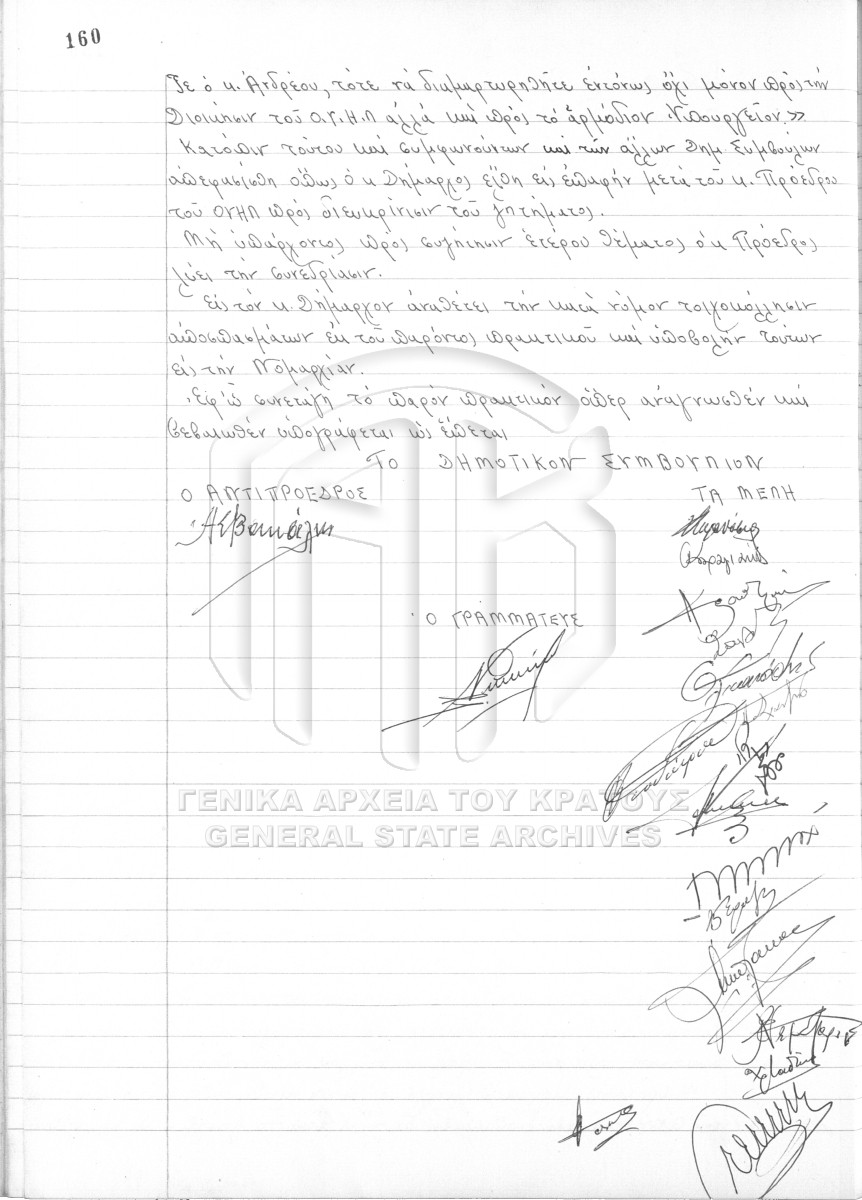 160
τε ὁ κ. Ἀνδρέου, τότε νά διαμαρτυρηθῆτε ἐντόνως ὄχι μόνον πρός τήν
Διοίκησιν τοῦ Ο.Υ.Η.Λ ἀλλά καί πρός τό ἁρμόδιον Ὑπουργεῖον.»
Κατόπιν τούτου καί συμφωνούντων καί τῶν ἄλλων Δημ. Συμβούλων
ἀπεφασίσθη ὅπως ὁ κ Δήμαρχος ἔλθη εἰς ἐπαφήν μετά τοῦ κ. Πρόεδρου
τοῦ ΟΥΗΛ πρός διευκρίνισιν τοῦ ζητήματος.
Μή ὑπάρχοντος πρός συζήτησιν ἑτέρου θέματος ὁ κ Πρόεδρος
λύει τήν συνεδρίασιν.
Εἰς τόν κ. Δήμαρχον ἀναθέτει τήν κατά νόμον τοιχοκόλλησιν
ἀποσπασμάτων ἐκ τοῦ παρόντος πρακτικοῦ καί ὑποβολήν τούτων
εἰς τήν Νομαρχίαν.
Ἐφ' ᾧ συνετάγη τό παρόν πρακτικόν ὅπερ ἀναγνωσθέν καί
βεβαιωθέν ὑπογράφεται ὡς ἕπεται
ΤΟ ΔΗΜΟΤΙΚΟΝ ΣΥΜΒΟΥΛΙΟΝ
Ο ΑΝΤΙΠΡΟΕΔΡΟΣ ΤΑ ΜΕΛΗ
Ο ΓΡΑΜΜΑΤΕΥΣ
ΓΕΝΙΚΑ ΑΡΧΕΙΑ ΤΟΥ ΚΡΑΤΟΥΣ
GENERAL STATE ARCHIVES